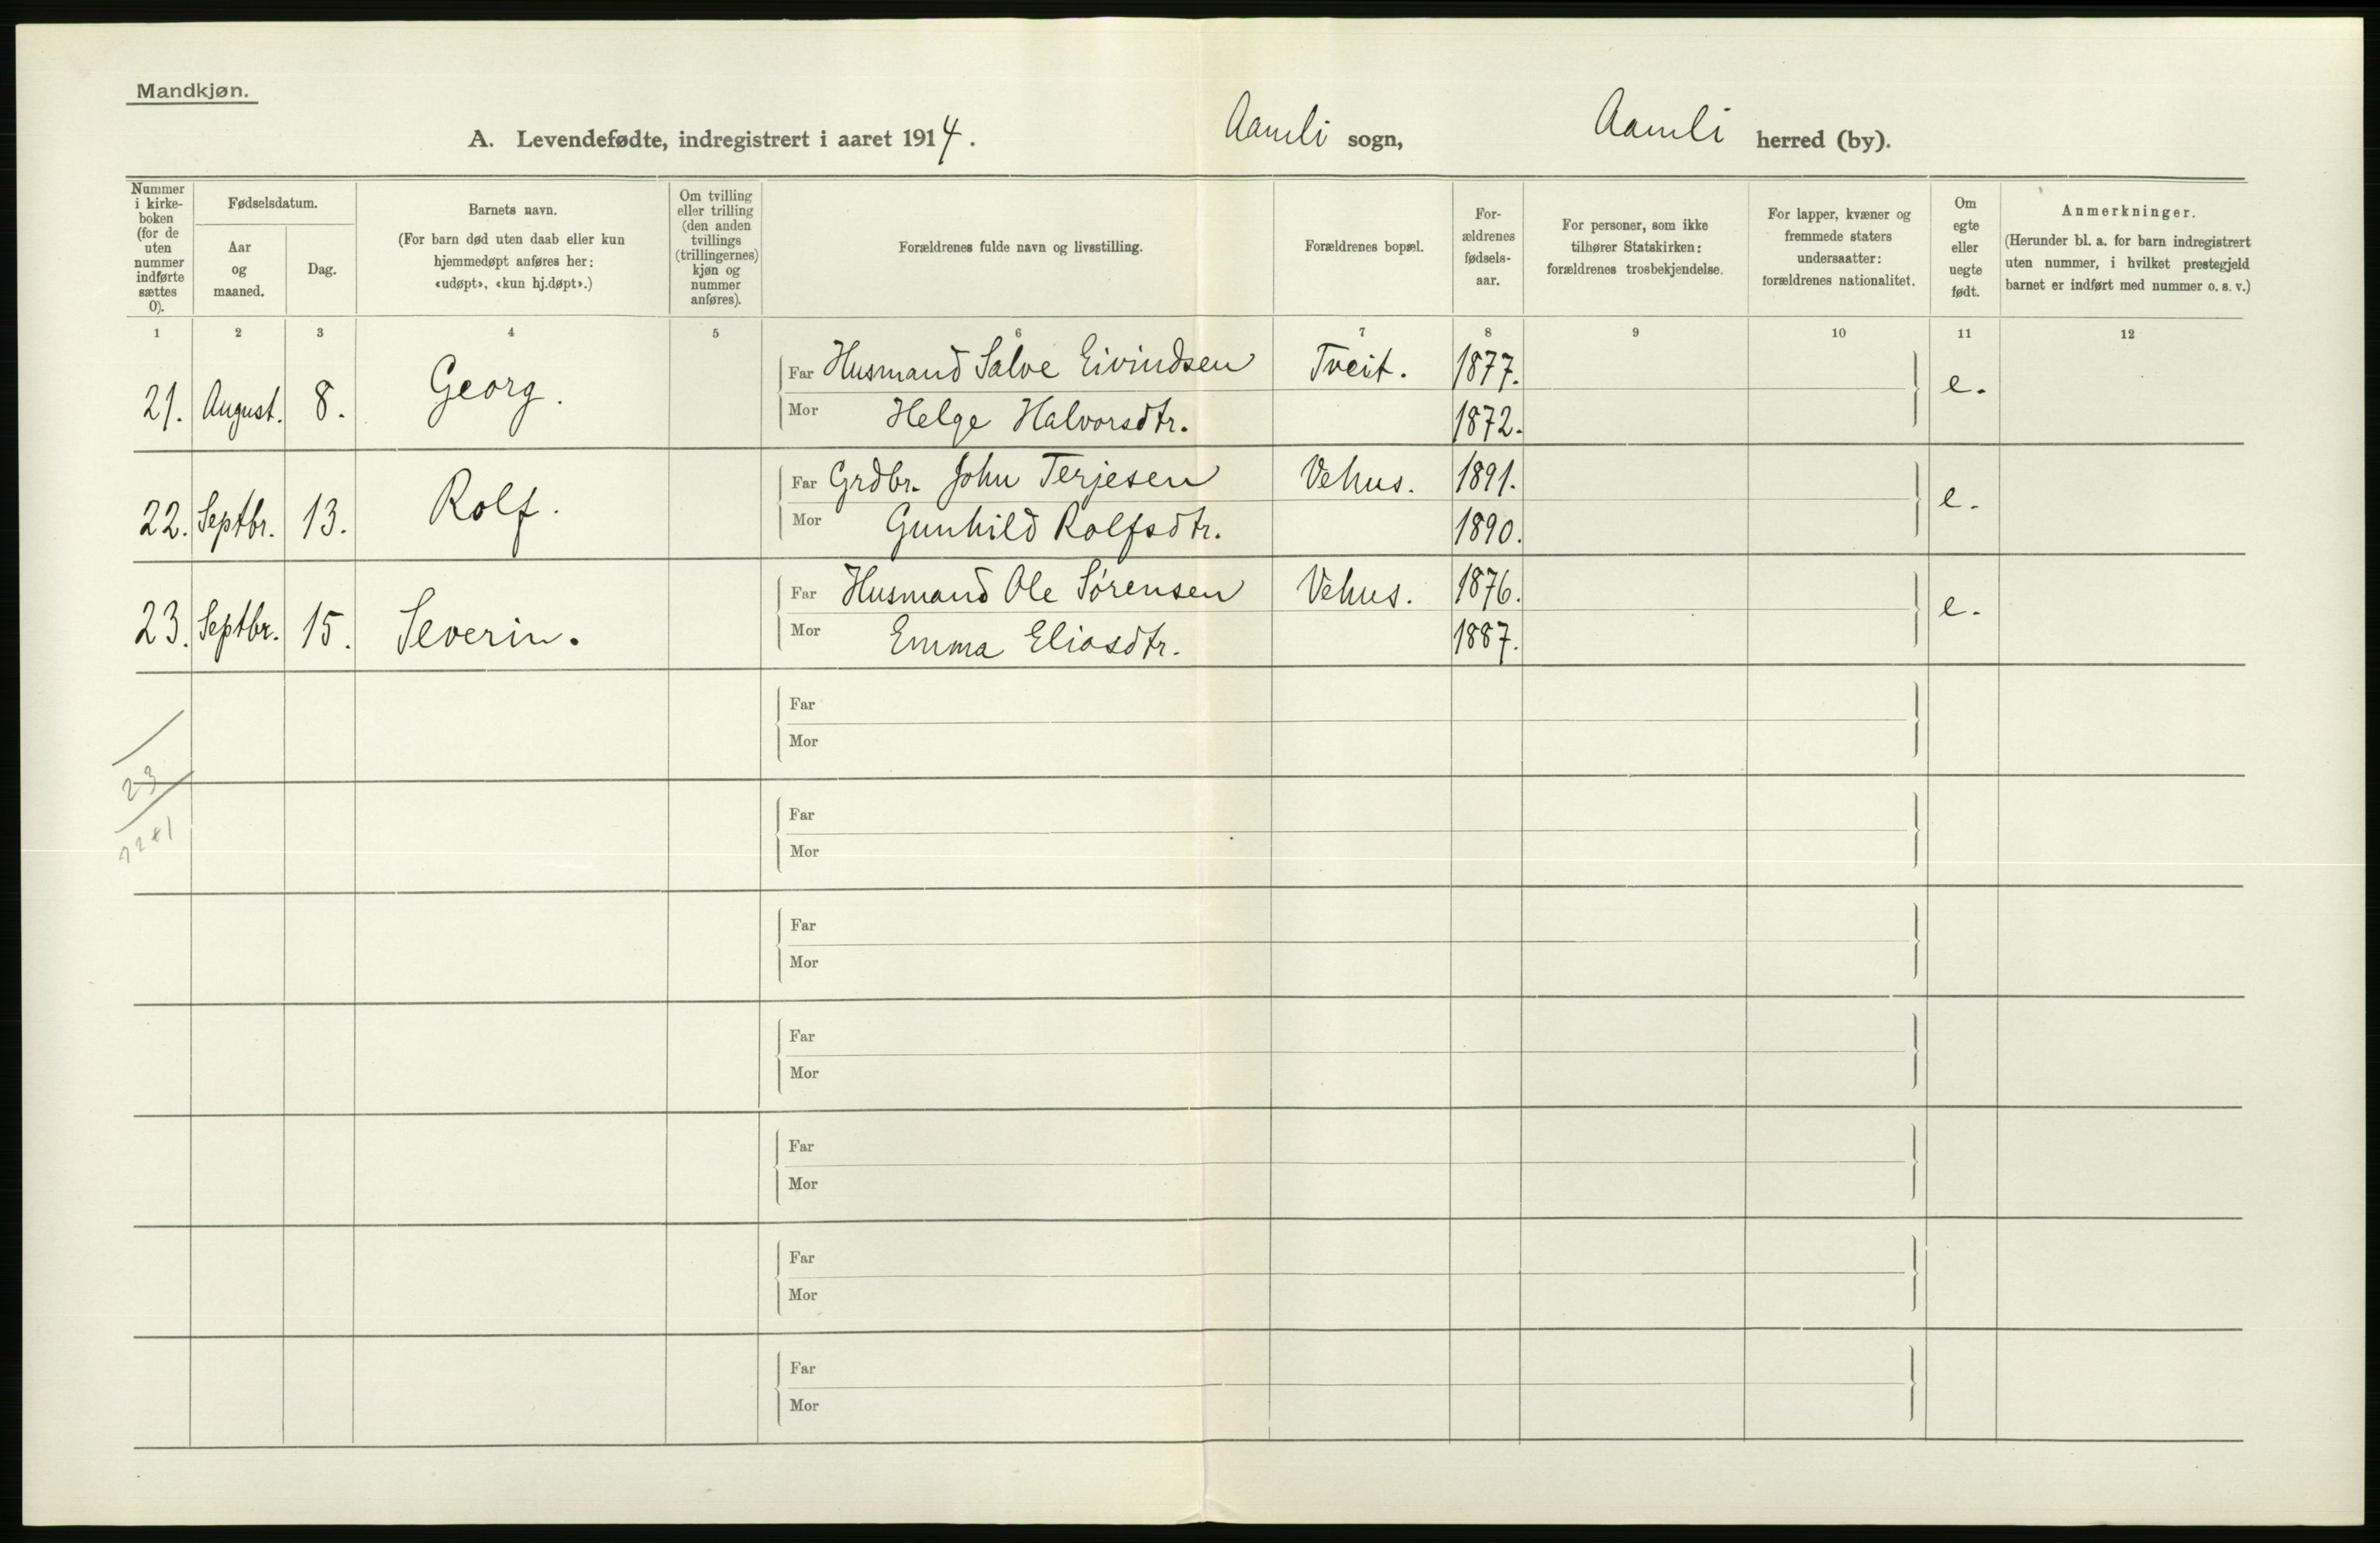 Mandkjøn.
A. Levendefødte, indregistrert i aaret 1914. Aamli sogn, Aamli herred (by).
Nummer i kirke- boken (for de uten nummer indførte sættes 0).
Fødselsdatum.
Aar og maaned.
Dag.
Barnets navn.
(For barn død uten daab eller kun hjemmedøpt anføres her: «udøpt», «kun hj.døpt».)
Om tvilling eller trilling (den anden tvillings (trillingernes) kjøn og nummer anføres).
Forældrenes fulde navn og livsstilling.
Forældrenes bopæl.
For- ældrenes fødsels- aar.
For personer, som ikke tilhører Statskirken: forældrenes trosbekjendelse.
For lapper, kvæner og fremmede staters undersaatter: forældrenes nationalitet.
Om egte eller uegte født.
Anmerkninger.
(Herunder bl. a. for barn indregistrert uten nummer, i hvilket prestegjeld barnet er indført med nummer o. s. v.)
1 2 3 4 5 6 7 8 9 10 11 12
21. August. 8. Georg. Far Husmand Salve Eivindsen Tveit. 1877. e.
Mor Helge Halvorsdtr. 1872.
22. Septbr. 13. Rolf. Far Grdbr. John Terjesen Vehus. 1891. e.
Mor Gunhild Rolfsdtr. 1890.
23. Septbr. 15. Severin. Far Husmand Ole Sørensen Vehus. 1876. e.
Mor Emma Eliasdtr. 1887.
Far
Mor
23
Far
Mor
Far
Mor
Far
Mor
Far
Mor
Far
Mor
Far
Mor